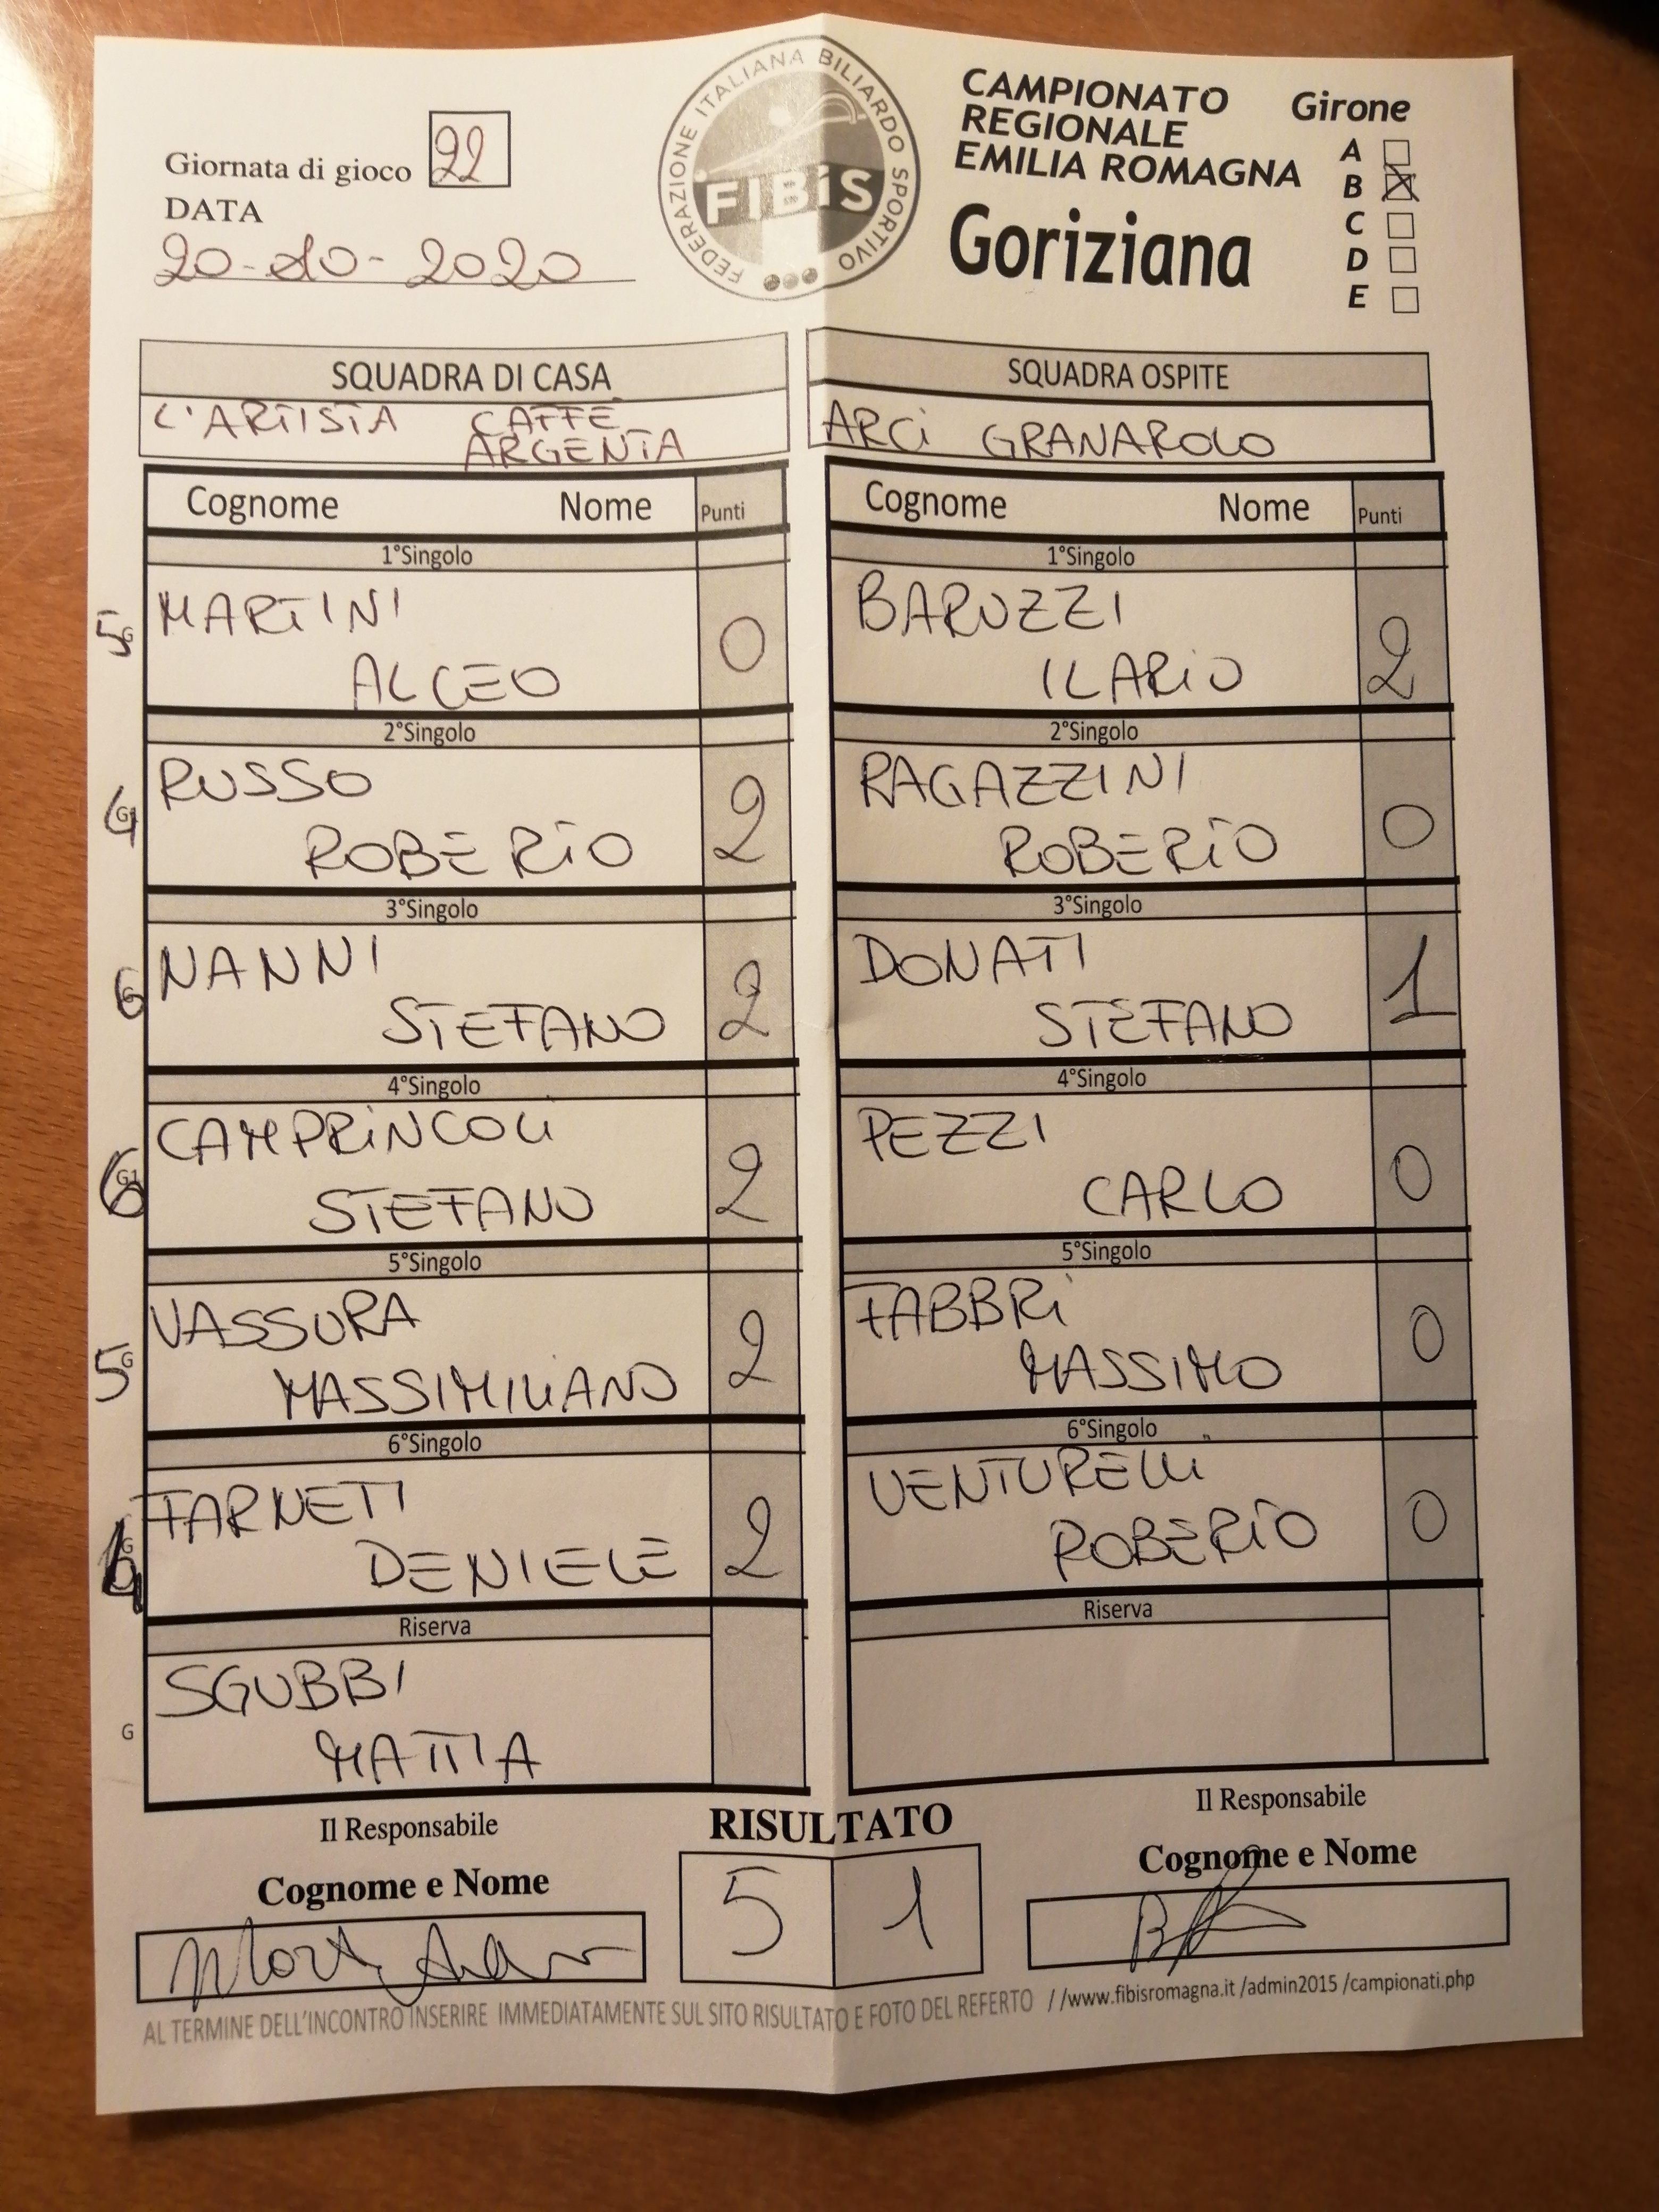 Giornata di gioco 22
DATA
20-10-2020
FEDERAZIONE ITALIANA BILIARDO SPORTIVO
FIBiS
CAMPIONATO
REGIONALE
EMILIA ROMAGNA
Goriziana
Girone
A
B
C
D
E
SQUADRA DI CASA
L'ARTISTA CAFFÈ
ARGENTA
SQUADRA OSPITE
ARCI GRANAROLO
Cognome Nome Punti
Cognome Nome Punti
1°Singolo
1°Singolo
5 G MARTINI
ALCEO 0
BARUZZI
ILARIO 2
2°Singolo
2°Singolo
RUSSO
ROBERTO 2
RAGAZZINI
ROBERTO 0
3°Singolo
3°Singolo
6 NANNI
STEFANO 2
DONATI
STEFANO 1
4°Singolo
4°Singolo
6 CAMPRINCOLI
STEFANO 2
PEZZI
CARLO 0
5°Singolo
5°Singolo
5 G VASSURA
MASSIMILIANO 2
FABBRI
MASSIMO 0
6°Singolo
6°Singolo
FARNETI
DENIELE 2
VENTURELLI
ROBERTO 0
Riserva
Riserva
G SGUBBI
MATTIA
Il Responsabile
Cognome e Nome
RISULTATO
5 1
Il Responsabile
Cognome e Nome
AL TERMINE DELL'INCONTRO INSERIRE IMMEDIATAMENTE SUL SITO RISULTATO E FOTO DEL REFERTO //www.fibisromagna.it /admin2015 /campionati.php